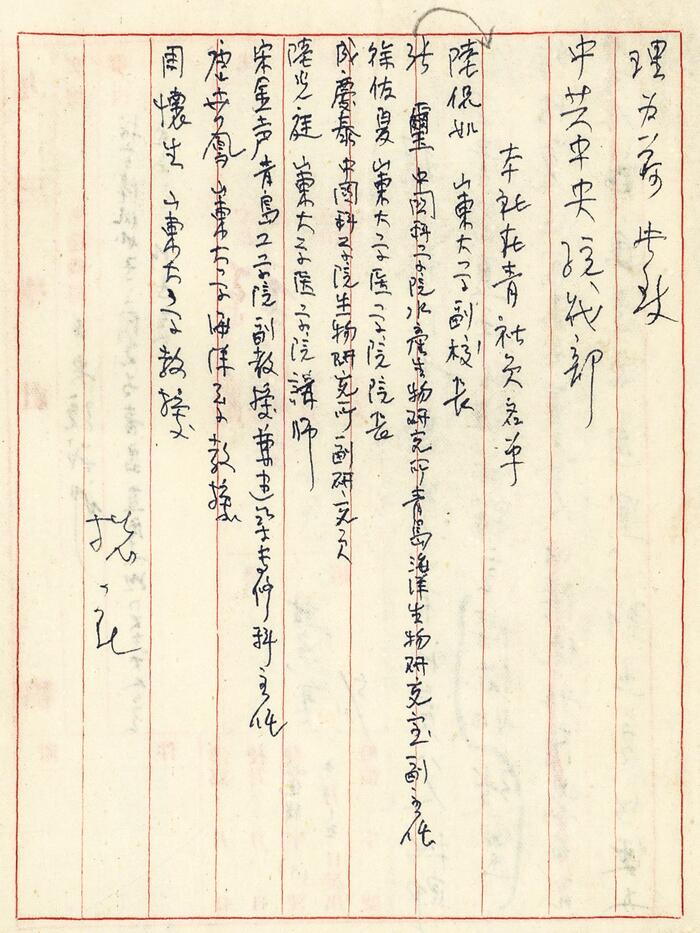 理为荷 此致
中共中央统战部
本社在青社员名单
陸侃如 山東大学副校长
张玺 中国科学院水产生物研究所青岛海洋生物研究室副主任
徐佐夏 山東大学医学院院长
成慶泰 中国科学院生物研究所副研究员
陸光庭 山東大学医学院講师
宋金声 青島工学院副教授兼建筑专修科主任
唐世凤 山東大学海洋系教授
周懷生 山東大学教授